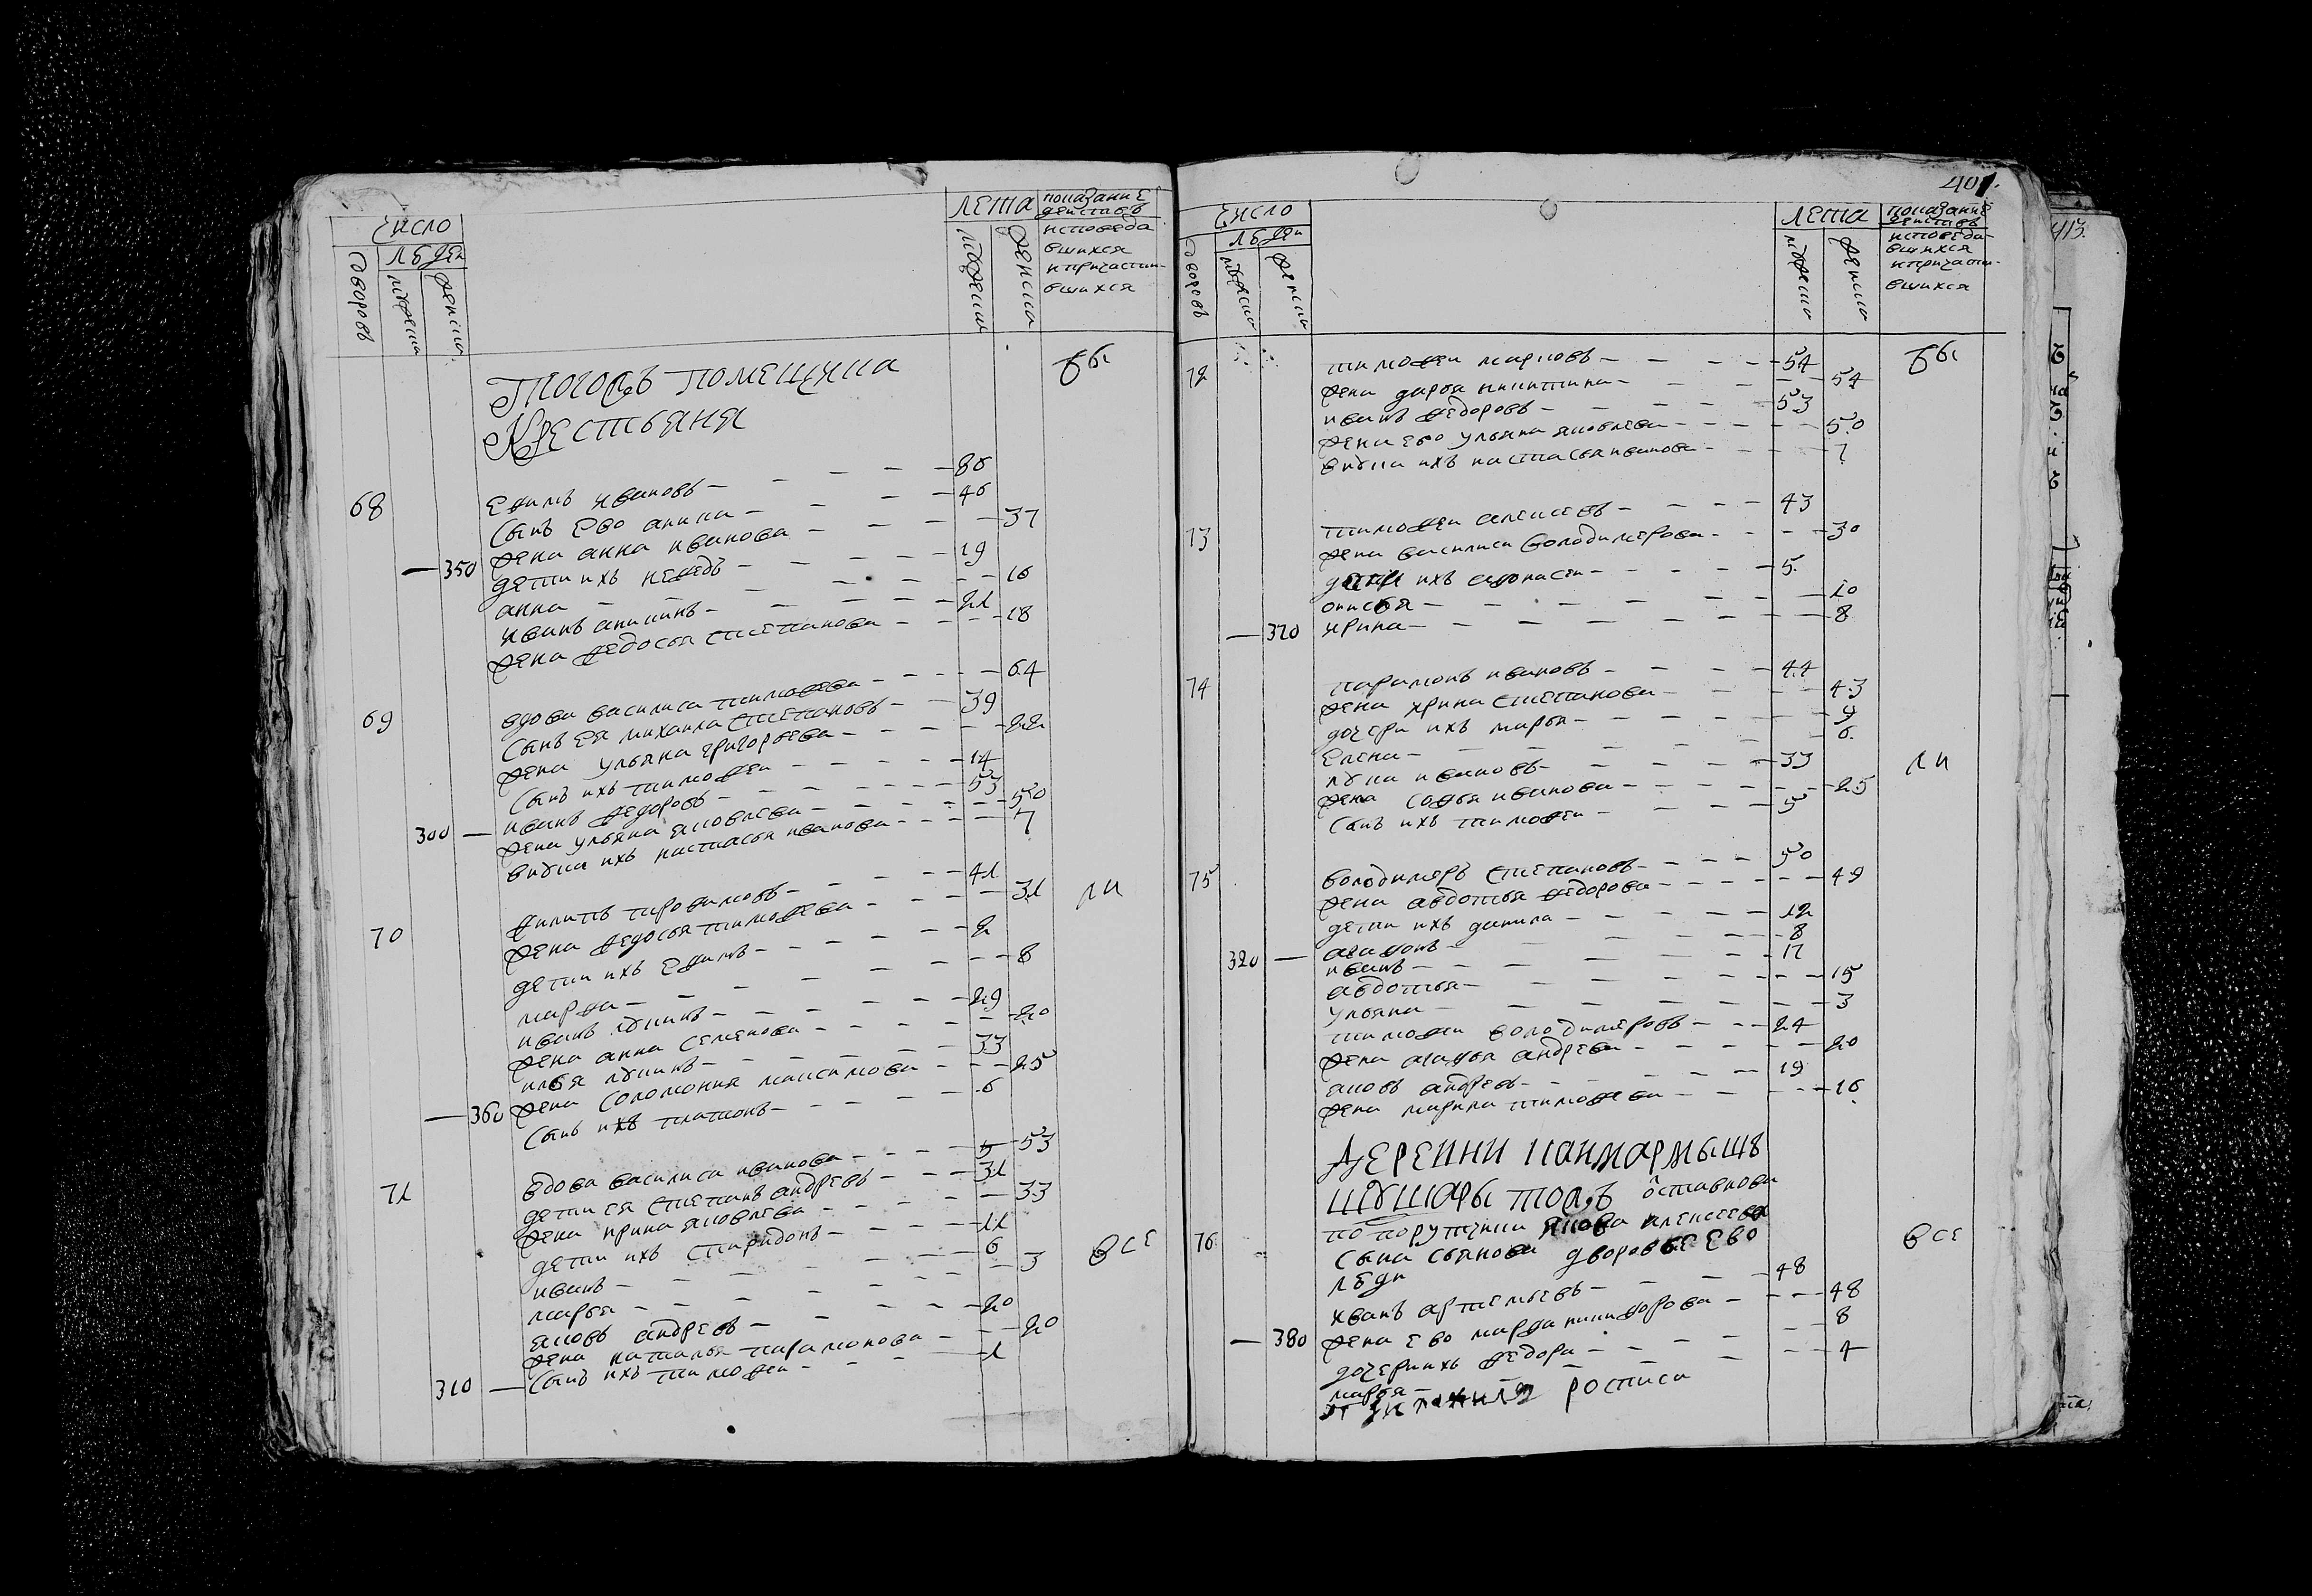 Число
Людеи
Дворовъ
мужеска
женска
ЛЕТА
мужеска
женска
показание
деиствъ
исповеда
вшихся
и причасти-
вшихся
Тогожъ помещика
Крестьяня
бы
68
Ефимъ Ивановъ 86
Сынъ Ево аника 46
жена анна иванова 37
350
дети ихъ нефедъ 19
анна 16
Иванъ аникинъ 21
жена федосья степанова 18
69
вдова василиса тимофеева 64
Сынъ Ея михаила степановъ 39
жена ульяна григорьева 22
Сынъ ихъ тимофеи 14
иванъ федоровъ 53
300
жена ульяна яковлева 50
внука ихъ настасья иванова 7
70
филипъ трофимовъ 41
жена федосья тимофеева 31
ли
дети ихъ Ефимъ 2
марфа 8
иванъ лукинъ 29
жена анна семенова 20
илья лукинъ 33
360
жена соломония максимова 25
Сынъ ихъ платонъ 6
71
вдова василиса иванова 53
дети ея степанъ андреевъ 31
жена ирина яковлева 33
дети ихъ спиридонъ 11
иванъ 6
марья 3
все
яковъ андреевъ 20
жена наталья парамонова 20
310
Сынъ ихъ тимофеи 1
401.
Число
Людеи
Дворовъ
мужеска
женска
ЛЕТА
мужеска
женска
показание
деиствъ
исповеда-
вшихся
и причасти-
вшихся
72
тимофеи марковъ 54
бы
жена дарья никитина 54
иванъ федоровъ 53
жена ево ульяна яковлева 50
внука ихъ настасья иванова 7
73
тимофеи алексеевъ 43
жена василиса володимерова 30
дети ихъ афонасеи 5
анисья 10
370
ирина 8
74
парамонъ ивановъ 44
жена ирина степанова 43
дочери ихъ марья 9
Елена 6
лука ивановъ 33
ли
жена софья иванова 25
Сынъ ихъ тимофеи 5
75
володимеръ степановъ 50
жена авдотья федорова 49
дети ихъ данила 12
агафонъ 8
320
иванъ 17
авдотья 15
ульяна 3
тимофеи володимеровъ 24
жена агафья андреева 20
яковъ андреевъ 19
жена марина тимофеева 16
Деревни Каикармыша
Шушары тожъ отставнова
76
по порутчика якова алексеева
все
Сына дворовые Ево
люди
Иванъ артемьевъ 48
380
жена ево марфа никифорова 48
дочери ихъ федора 8
марья 4
росписи
413.